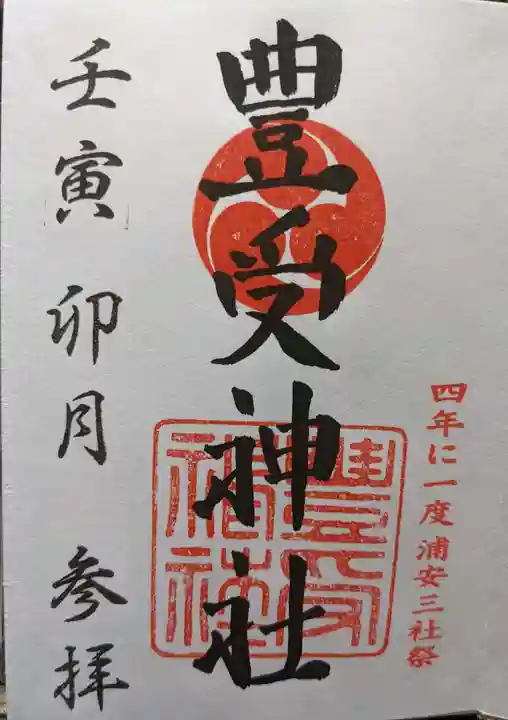 四年に一度浦安三社祭
豊受神社
豊受神社
壬寅 卯月 参拝